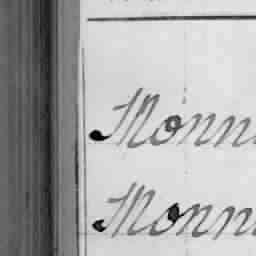 Monn
Monn